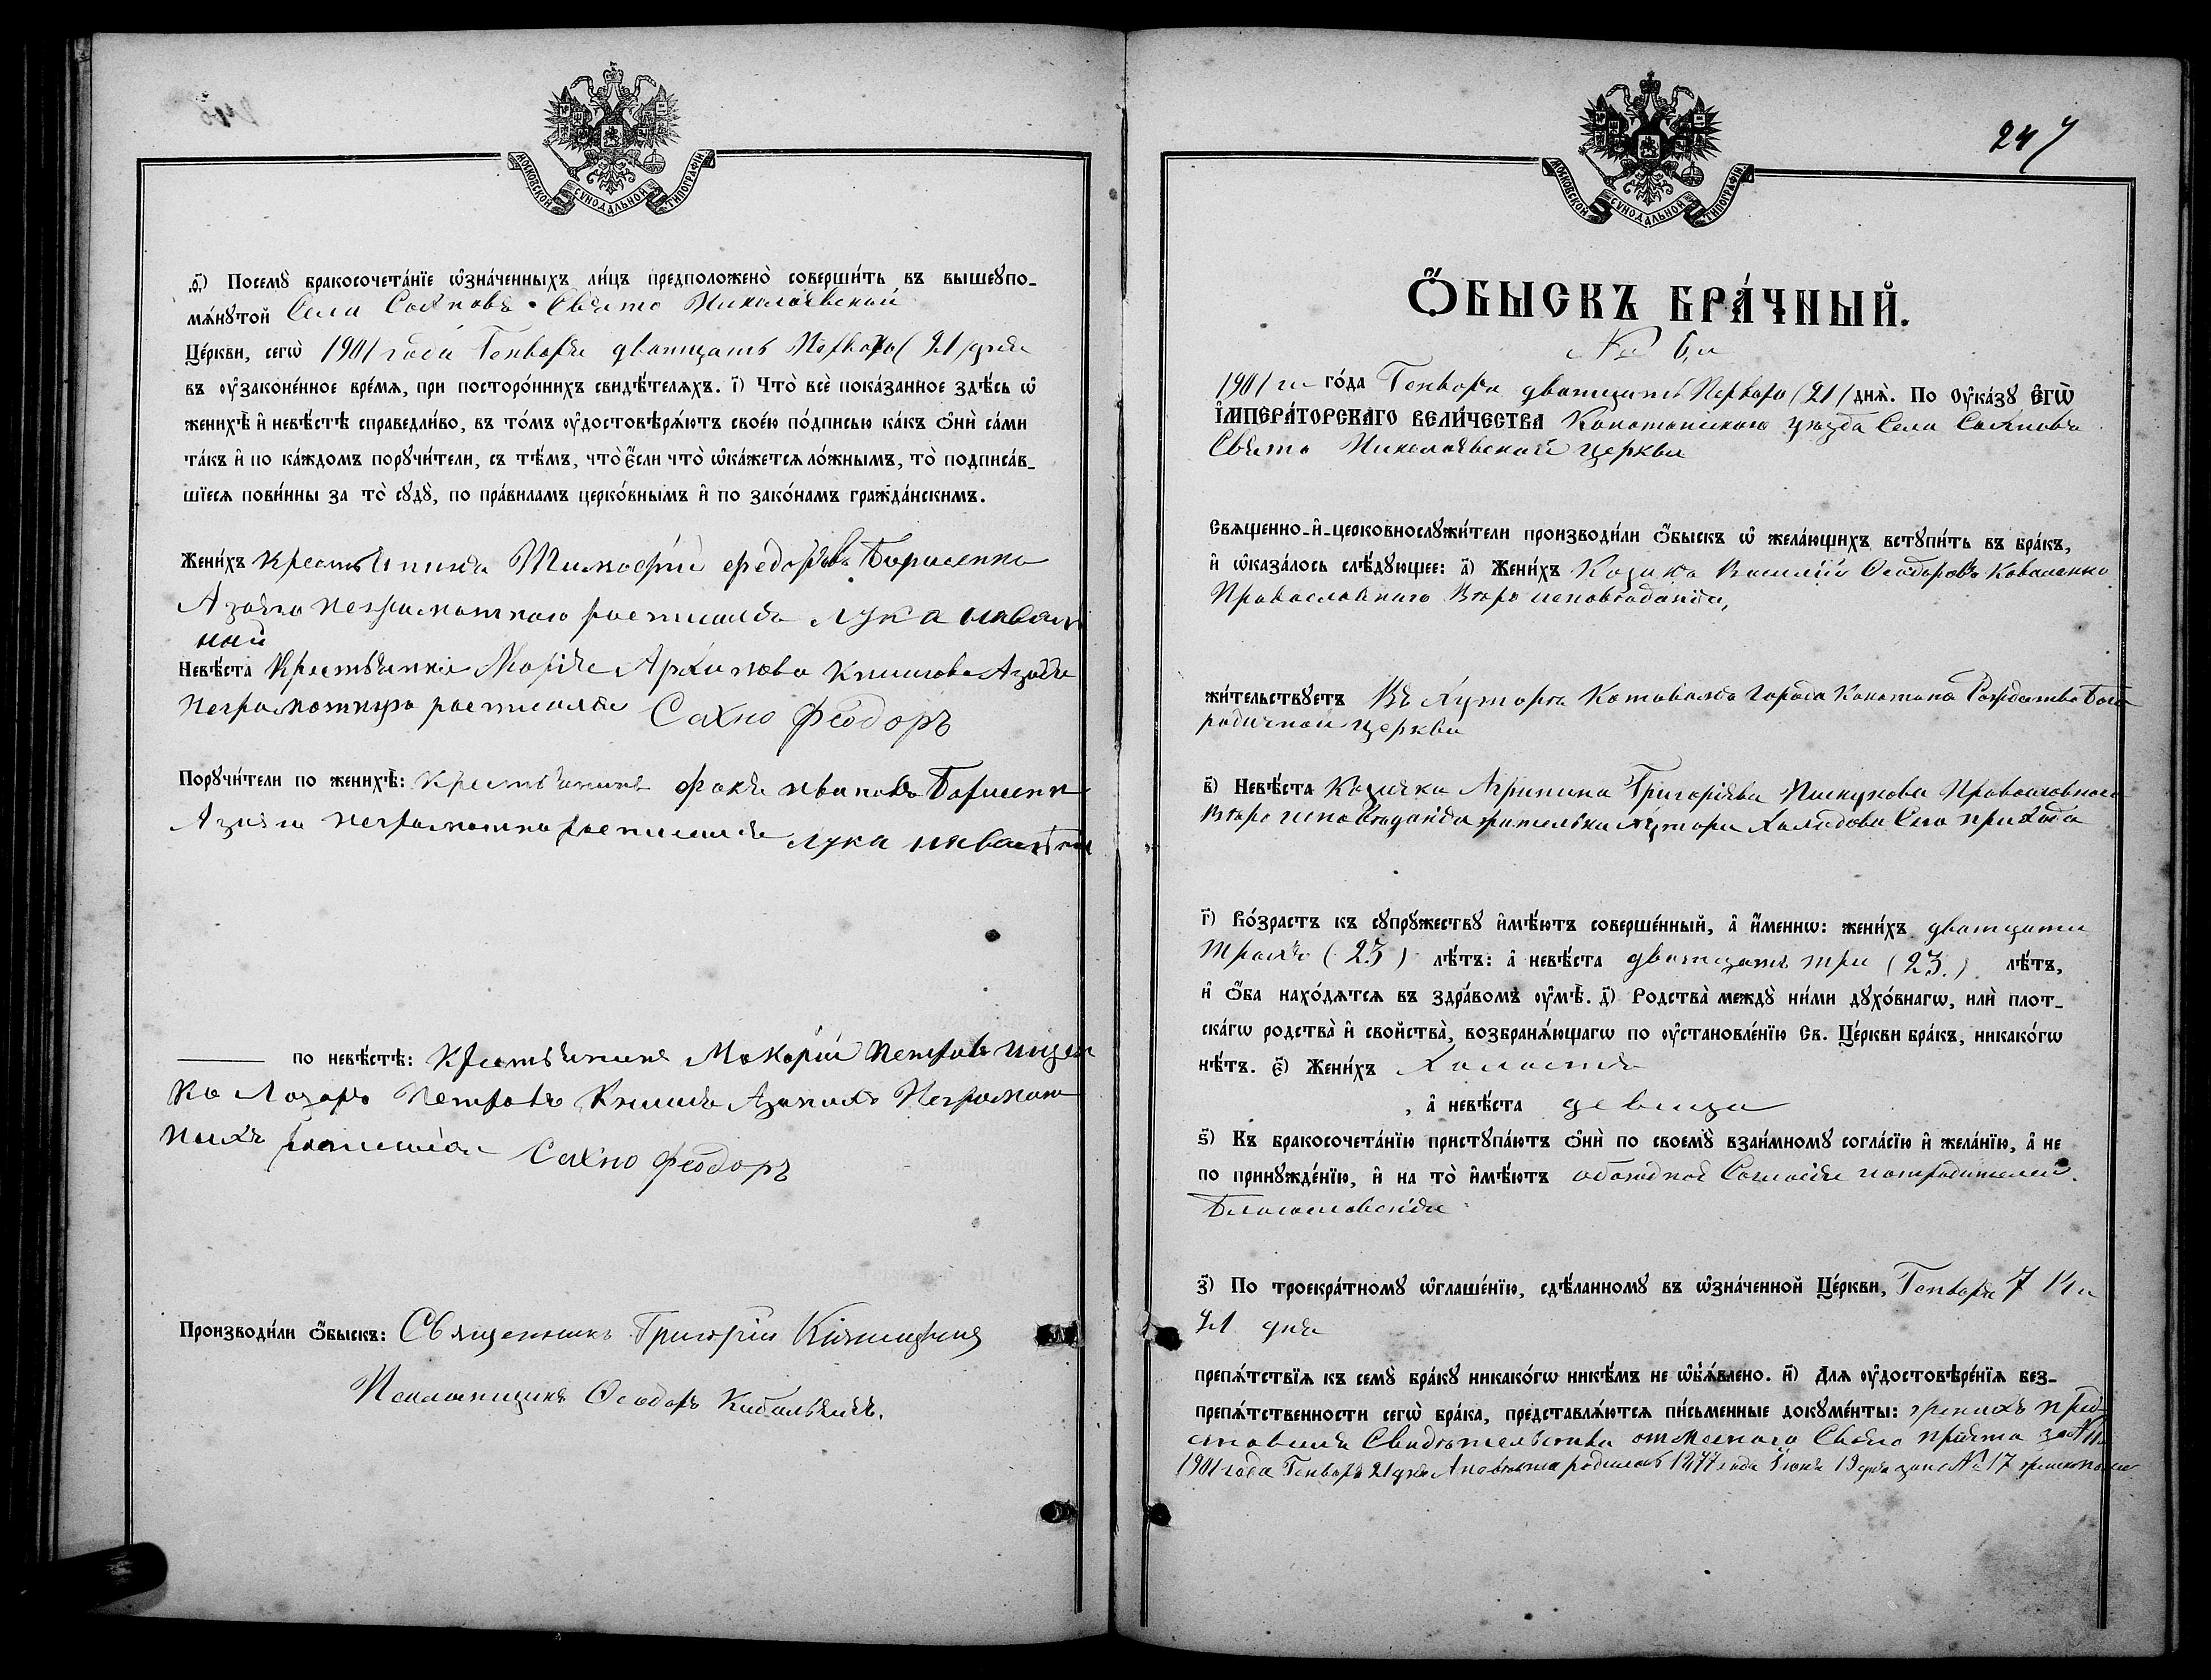 МОСКОВСКОЙ СѴНОДАЛЬНОЙ ТИПОГРАФІИ
ѳ҃) Посемꙋ̀ бракосочета́нїе ѡ҆зна́ченныхъ ли́цъ предположено̀ соверши́ть въ вышеꙋпо-
мѧ́нꙋтой Села Сахновъ Свято Николаевской
Це́ркви, сегѡ̀ 1901 года Генваря дватцать Перваго (21) дня
въ ᲂу҆законе́нное вре́мѧ, при посторо́ннихъ свидѣ́телѧхъ. і҃) Что̀ всѐ пока́занное здѣ́сь ѡ҆
женихѣ̀ и҆ невѣ́стѣ справедли́во, въ то́мъ ᲂу҆достовѣрѧ́ютъ свое́ю по́дписью ка́къ ѻ҆нѝ са́ми
та́къ и҆ по ка́ждомъ порꙋчи́тели, съ тѣ́мъ, что̀ є҆́сли что̀ ѡ҆ка́жетсѧ ло́жнымъ, то̀ подписа́в-
шїесѧ пови́нны за то̀ сꙋдꙋ̀, по пра́виламъ церко́внымъ и҆ по зако́намъ гражда́нскимъ.
Жени́хъ крестьянинъ Тимофій Федоровъ Борисенко
А за него неграмотнаго росписался лука
Невѣ́ста Крестьянка Марія Архипова Книшова А за нея
неграмотную росписался Сахно Феодоръ
Порꙋчи́тели по женихѣ̀: Крестьянинъ Фока Ивановъ Борисенко
А за него неграмотнаго росписался лука
по невѣ́стѣ: Крестьянинъ Макарій Петровъ
ко Лазарь Петровъ Книшъ А за нихъ Неграмот
ныхъ росписался Сахно Феодоръ
Производи́ли ѻ҆́быскъ: Священникъ Григорій
Псаломщикъ Ѳеодоръ Кибальчичъ.
247
МОСКОВСКОЙ СѴНОДАЛЬНОЙ ТИПОГРАФІИ
Ѻ҆́БЫСКЪ БРА́ЧНЫЙ.
№ 6й
1901 го го́да Генваря дватцать Перваго (21) днѧ̀. По ᲂу҆ка́зꙋ Є҆ГѠ̀
І҆МПЕРА́ТОРСКАГО ВЕЛИ́ЧЕСТВА Конотопскаго уѣзда Села Сахновъ
Свято Николаевской церкви
Свѧщенно-и҆-церковнослꙋжи́тели производи́ли ѻ҆́быскъ ѡ҆ жела́ющихъ встꙋпи́ть въ бра́къ,
и҆ ѡ҆каза́лось слѣ́дꙋющее: а҃) Жени́хъ Козакъ Василій Ѳеодоровъ Коваленко
Православнаго Вѣро исповѣданія,
жи́тельствꙋетъ Въ Хуторѣ города Конотопа Рождество Бого
родичной церкви
в҃) Невѣ́ста Козачка Агрипина Григоріева Пискунова Православнаго
Вѣро исповѣданія жителька хутора Сего прихода
г҃) Во́зрастъ къ сꙋпрꙋ́жествꙋ и҆мѣ́ютъ соверше́нный, а҆ и҆́меннѡ: жени́хъ дватцати
трохъ (23) лѣ́тъ: а҆ невѣ́ста дватцать три (23.) лѣ́тъ,
и҆ ѻ҆́ба нахо́дѧтсѧ въ здра́вомъ ᲂу҆мѣ̀. д҃) Родства̀ междꙋ̀ ни́ми дꙋхо́внагѡ, илѝ плот-
ска́гѡ родства̀ и҆ свойства̀, возбранѧ́ющагѡ по ᲂу҆становле́нїю Св. Це́ркви бра́къ, никако́гѡ
нѣ́тъ. є҃) Жени́хъ Холостъ
, а҆ невѣ́ста девица
ѕ҃) Къ бракосочета́нїю пристꙋпа́ютъ ѻ҆нѝ по своемꙋ̀ взаи́мномꙋ согла́сїю и҆ жела́нїю, а҆ не
по принꙋжде́нїю, и҆ на то̀ и҆мѣ́ютъ обоюдное Согласіе
Благословеніе
з҃) По троекра́тномꙋ ѡ҆глаше́нїю, сдѣ́ланномꙋ въ ѡ҆зна́ченной Це́ркви, Генваря 7 14 и
21 дня
препѧ́тствїѧ къ семꙋ̀ бра́кꙋ никако́гѡ никѣ́мъ не ѡ҆б̾ѧ́влено. и҃) Длѧ ᲂу҆достовѣре́нїѧ без-
препѧ́тственности сегѡ̀ бра́ка, представлѧ́ютсѧ пи́сьменные докꙋме́нты: женихъ пред
ставилъ Свидѣтельство от
1901 года Генваря 21 дня А невѣста родилась 1877 года Іюня 19 дня № 17